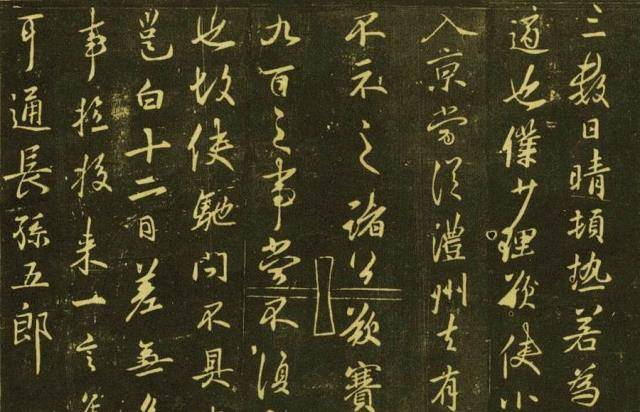 三数日晴頓热若为
適也僕少理欲使小
入京当従澧州去有
不示之诸公欲賽
九百之事当不須
也故使馳问不具
邕白十二日差無
事投来一言
耳通長孫五郎